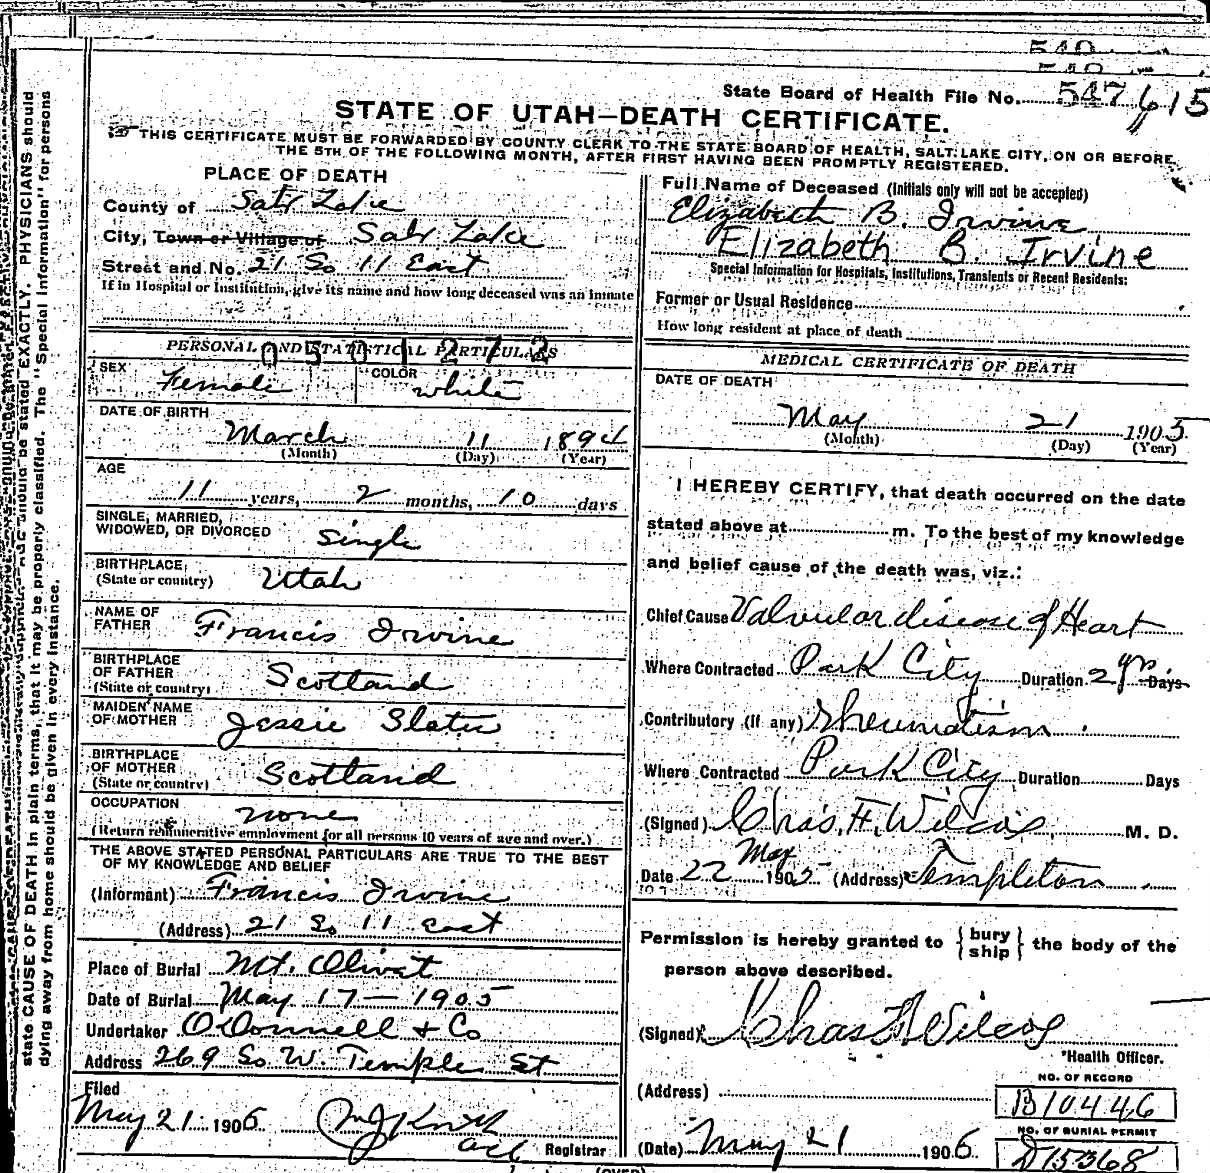 State Board of Health File No. 547 615
STATE OF UTAH—DEATH CERTIFICATE.
THIS CERTIFICATE MUST BE FORWARDED BY COUNTY CLERK TO THE STATE BOARD OF HEALTH, SALT LAKE CITY, ON OR BEFORE
THE 5TH OF THE FOLLOWING MONTH, AFTER FIRST HAVING BEEN PROMPTLY REGISTERED.
PLACE OF DEATH
County of Salt Lake
City, Town or Village of Salt Lake
Street and No. 21 So 11 East
If in Hospital or Institution, give its name and how long deceased was an inmate
PERSONAL AND STATISTICAL PARTICULARS
0501272
SEX Female
COLOR white
DATE OF BIRTH
March 11 1894
(Month) (Day) (Year)
AGE
11 years, 2 months, 10 days
SINGLE, MARRIED,
WIDOWED, OR DIVORCED Single
BIRTHPLACE
(State or country) Utah
NAME OF
FATHER Francis Irvine
BIRTHPLACE
OF FATHER
(State or country) Scotland
MAIDEN NAME
OF MOTHER Jessie Slater
BIRTHPLACE
OF MOTHER
(State or country) Scotland
OCCUPATION none
(Return remunerative employment for all persons 10 years of age and over.)
THE ABOVE STATED PERSONAL PARTICULARS ARE TRUE TO THE BEST
OF MY KNOWLEDGE AND BELIEF
(Informant) Francis Irvine
(Address) 21 So 11 East
Place of Burial Mt. Olivat
Date of Burial May 17 — 1905
Undertaker O'Donnell & Co
Address 269 So W. Temple St
Filed
May 21 1906
Registrar
Full Name of Deceased (Initials only will not be accepted)
Elizabeth B. Irvine
Elizabeth B. Irvine
Special Information for Hospitals, Institutions, Transients or Recent Residents:
Former or Usual Residence
How long resident at place of death
MEDICAL CERTIFICATE OF DEATH
DATE OF DEATH
May 21 1905
(Month) (Day) (Year)
I HEREBY CERTIFY, that death occurred on the date
stated above at m. To the best of my knowledge
and belief cause of the death was, viz.:
Chief Cause Valvular disease of Heart
Where Contracted Park City Duration 2 yrs Days
Contributory (if any) Rheumatism
Where Contracted Park City Duration Days
(Signed) Chas. F. Wilcox M. D.
Date 22 May 1905 (Address) Templeton
Permission is hereby granted to { bury
ship } the body of the
person above described.
(Signed) Chas F Wilcox
Health Officer.
(Address)
(Date) May 21 1906
NO. OF RECORD
B10446
NO. OF BURIAL PERMIT
D15368
(OVER)
state CAUSE OF DEATH in plain terms, that it may be properly classified. The "Special Information" for persons
dying away from home should be given in every instance.
should be stated EXACTLY. PHYSICIANS should